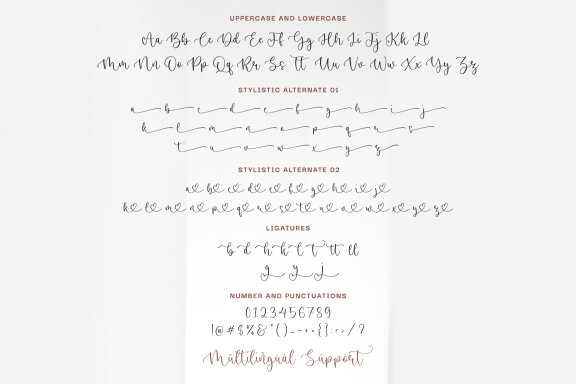 UPPERCASE AND LOWERCASE
Aa Bb Cc Dd Ee Ff Gg Hh Ii Jj Kk Ll
Mm Nn Oo Pp Qq Rr Ss Tt Uu Vv Ww Xx Yy Zz
STYLISTIC ALTERNATE 01
a b c d e f g h i j
k l m n o p q r s
t u v w x y z
STYLISTIC ALTERNATE 02
a b c d e f g h i j
k l m n o p q r s t u v w x y z
LIGATURES
b d h k l t tt ll
g y j
NUMBER AND PUNCTUATIONS
0123456789
Multilingual Support